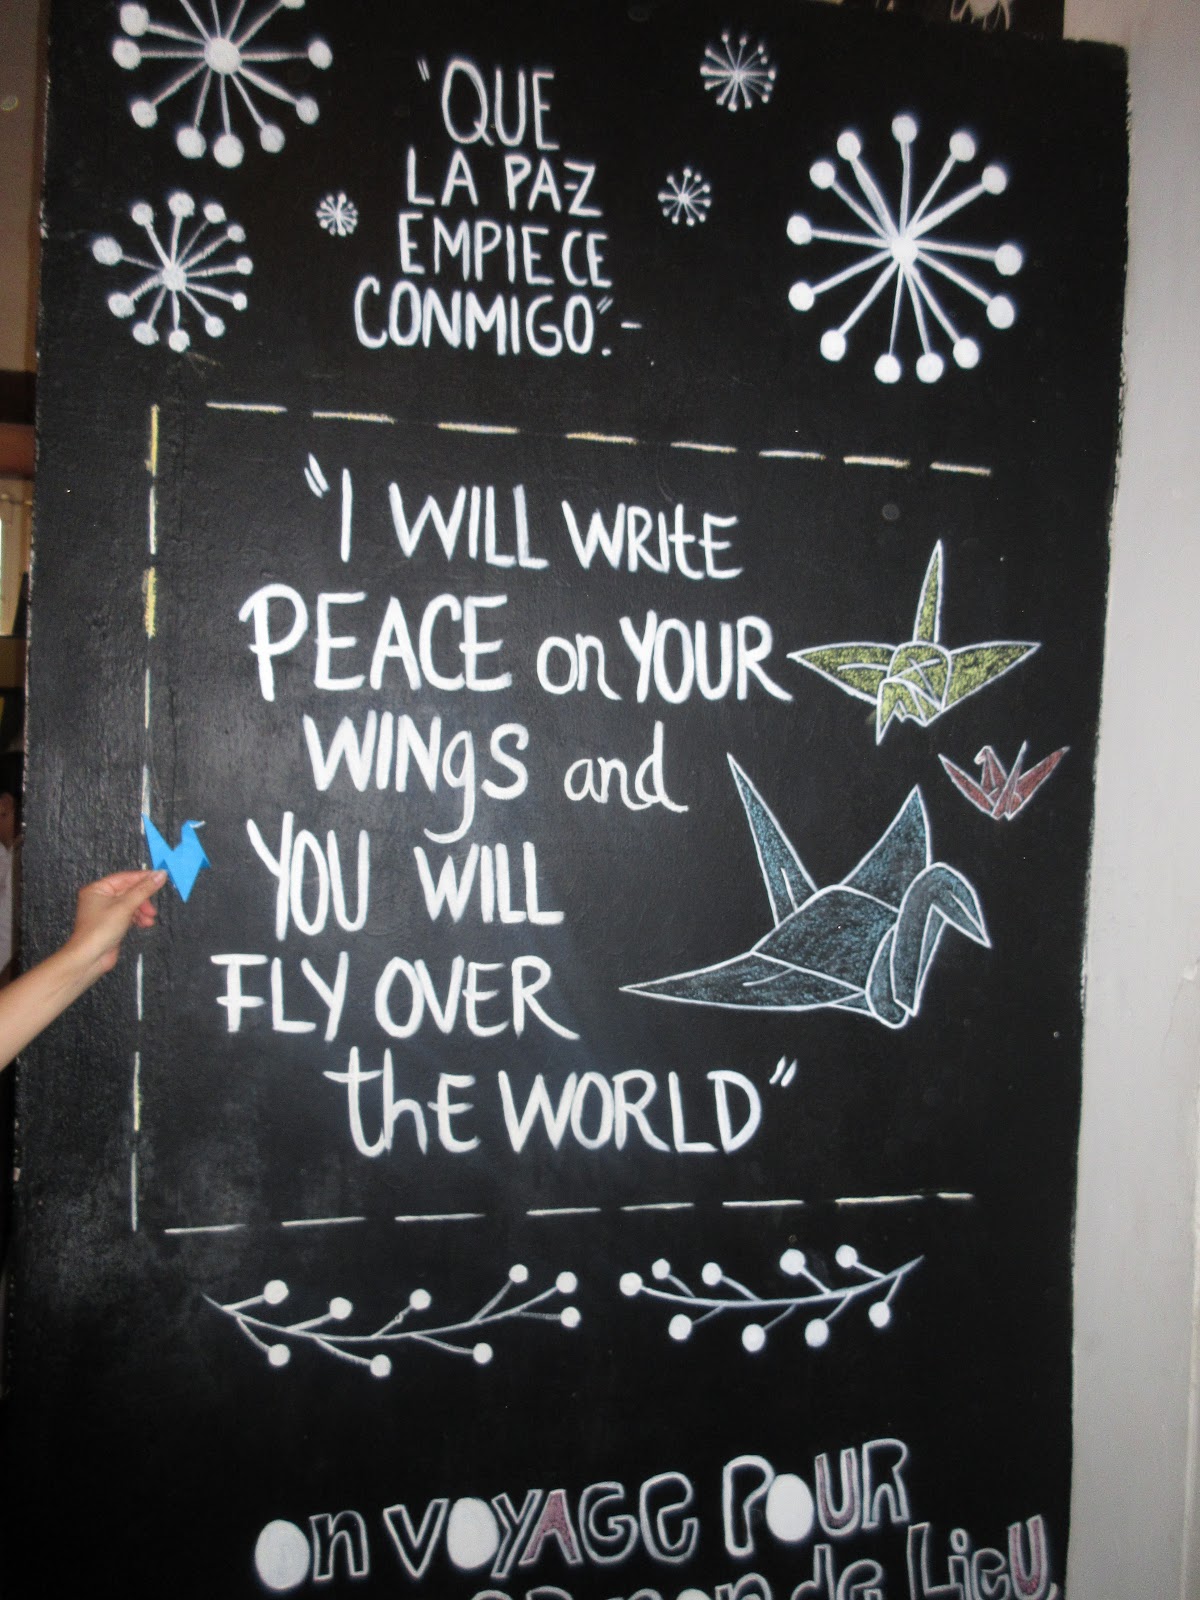 "QUE
LA PAZ
EMPIECE
CONMIGO".-
"I WILL WRITE
PEACE on YOUR
WINgS and
YOU WILL
FLY OVER
the WORLD"
On VOYAGE POUR
de LieU,